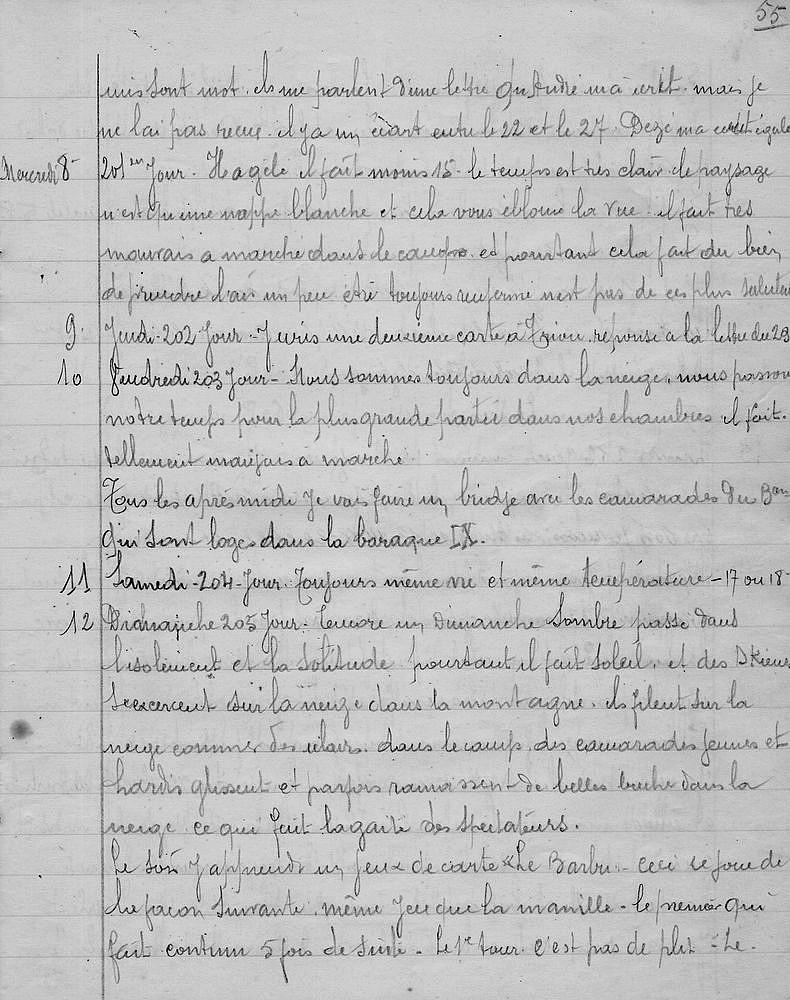 55
mis sont mot. ils me parlent d'une lettre qu'André m'a écrit. mais je
ne l'ai pas reçue. il y a un écart entre le 22 et le 27. Dezé m'a écrit égale
Mercredi 8 201em Jour. Il a gélé il fait moins 15. le temps est très clair. le paysage
n'est qu'une nappe blanche et cela vous éblouie la vue. il fait très
mauvais a marché dans le camp. et pourtant cela fait du bien
de prendre l'air un peu être toujours renfermé n'est pas de ces plus salutai
9. Jeudi-202 Jour. - J'ecris une deuxième carte a reponse a la lettre du 23
10 Vendredi 203 Jour - Nous sommes toujours dans la neige. nous passon
notre temps pour la plus grande partie dans nos chambres il fait.
tellement mauvais a marché
Tous les après midi Je vais faire un bridje avec les camarades du Bon
qui sont logés dans la baraque IX.
11 Samedi-204-Jour. Toujours même vie et même température -17 ou 18
12 Dimanche 205 Jour. Encore un Dimanche sombre passé dans
l'isolement et la solitude pourtant il fait soleil. et des Skieurs
s'exercent sur la neige dans la montagne. ils filent sur la
neige comme des éclairs. dans le camp des camarades jeunes et
hardis glissent et parfois ramassent de belles buche dans la
neige ce qui fait la gaité des spectateurs.
Le soir J'apprends un jeux de carte "Le Barbu - Ceci se joue de
la façon suivante. même Jeu que la manille - le premier qui
fait contient 5 fois de suite. Le 1er tour. C'est pas de plit - Le.